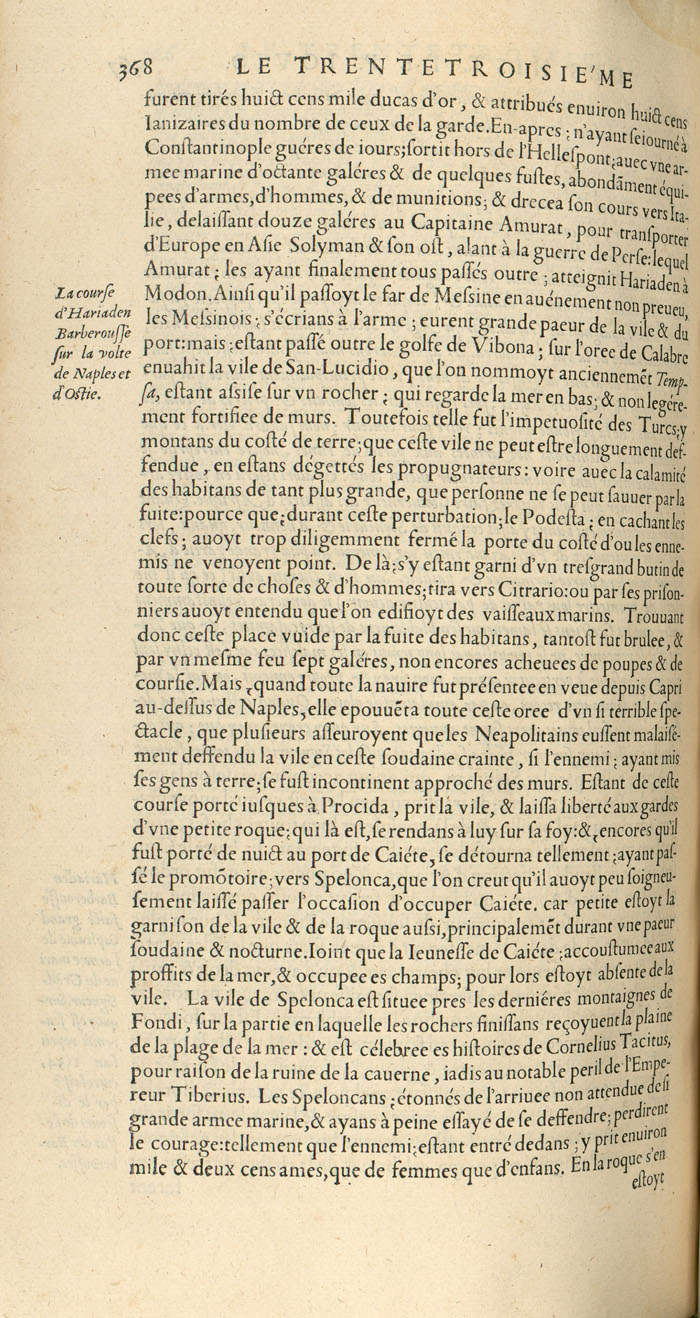 368 LE TRENTETROISIE'ME
furent tirés huict cens mile ducas d'or, & attribués enuiron huict cens
Ianizaires du nombre de ceux de la garde. En-apres ; n'ayant seiourné à
Constantinople guéres de iours; sortit hors de l'Hellespont, auec vne ar-
mee marine d'octante galéres & de quelques fustes, abondãment équi-
pees d'armes, d'hommes, & de munitions; & drecea son cours vers Ita-
lie, delaissant douze galéres au Capitaine Amurat, pour transporter
d'Europe en Asie Solyman & son ost, alant à la guerre de Perse: lequel
Amurat ; les ayant finalement tous passés outre ; atteignit Hariaden à
Modon. Ainsi qu'il passoyt le far de Messine en auénement non preueu,
les Messinois ; s'écrians à l'arme ; eurent grande paeur de la vile & du
port: mais ; estant passé outre le golfe de Vibona ; sur l'oree de Calabre
enuahit la vile de San-Lucidio, que l'on nommoyt anciennemẽt Temp-
sa, estant assise sur vn rocher ; qui regarde la mer en bas; & non legére-
ment fortifiee de murs. Toutefois telle fut l'impetuosité des Turcs; y
montans du costé de terre; que ceste vile ne peut estre longuement def-
fendue, en estans dégettés les propugnateurs: voire auec la calamité
des habitans de tant plus grande, que personne ne se peut sauuer par la
fuite: pource que; durant ceste perturbation; le Podesta ; en cachant les
clefs; auoyt trop diligemment fermé la porte du costé d'ou les enne-
mis ne venoyent point. De là; s'y estant garni d'vn tresgrand butin de
toute sorte de choses & d'hommes; tira vers Citrario: ou par ses prison-
niers auoyt entendu que l'on edifioyt des vaisseaux marins. Trouuant
donc ceste place vuide par la fuite des habitans, tantost fut brulee, &
par vn mesme feu sept galéres, non encores acheuees de poupes & de
coursie. Mais ; quand toute la nauire fut présentee en veue depuis Capri
au-dessus de Naples, elle epouuẽta toute ceste oree d'vn si terrible spe-
ctacle, que plusieurs asseuroyent que les Neapolitains eussent malaise-
ment deffendu la vile en ceste soudaine crainte, si l'ennemi ; ayant mis
ses gens à terre; se fust incontinent approché des murs. Estant de ceste
course porté iusques à Procida, prit la vile, & laissa liberté aux gardes
d'vne petite roque; qui là est, se rendans à luy sur sa foy: & ; encores qu'il
fust porté de nuict au port de Caiéte, se détourna tellement ; ayant pas-
sé le promõtoire; vers Spelonca, que l'on creut qu'il auoyt peu soigneu-
sement laissé passer l'occasion d'occuper Caiéte. car petite estoyt la
garnison de la vile & de la roque aussi, principalemẽt durant vne paeur
soudaine & nocturne. Ioint que la Ieunesse de Caiéte ; accoustumee aux
proffits de la mer, & occupee es champs; pour lors estoyt absente de la
vile. La vile de Spelonca est situee pres les derniéres montaignes de
Fondi, sur la partie en laquelle les rochers finissans reçoyuent la plaine
de la plage de la mer : & est célebree es histoires de Cornelius Tacitus,
pour raison de la ruine de la cauerne, iadis au notable peril de l'Empe-
reur Tiberius. Les Speloncans ; étonnés de l'arriuee non attendue de si
grande armee marine, & ayans à peine essayé de se deffendre; perdirent
le courage: tellement que l'ennemi; estant entré dedans ; y prit enuiron
mile & deux cens ames, que de femmes que d'enfans. En la roque s'en
estoyt
La course
d'Hariaden
Barberousse
sur la volte
de Naples et
d'Ostie.